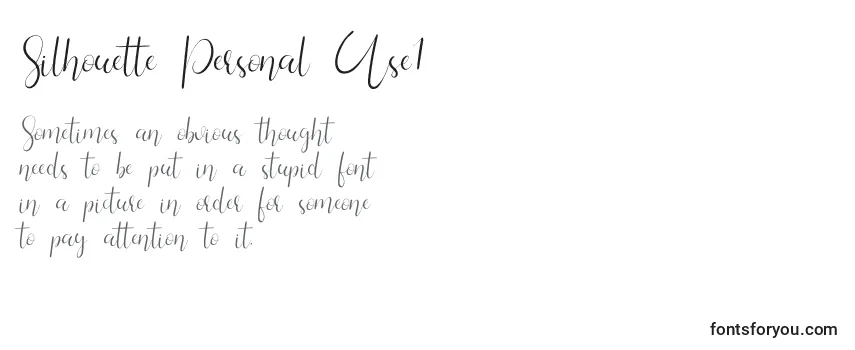 Silhouette Personal Use1
Sometimes an obvious thought
needs to be put in a stupid font
in a picture in order for someone
to pay attention to it.
fontsforyou.com